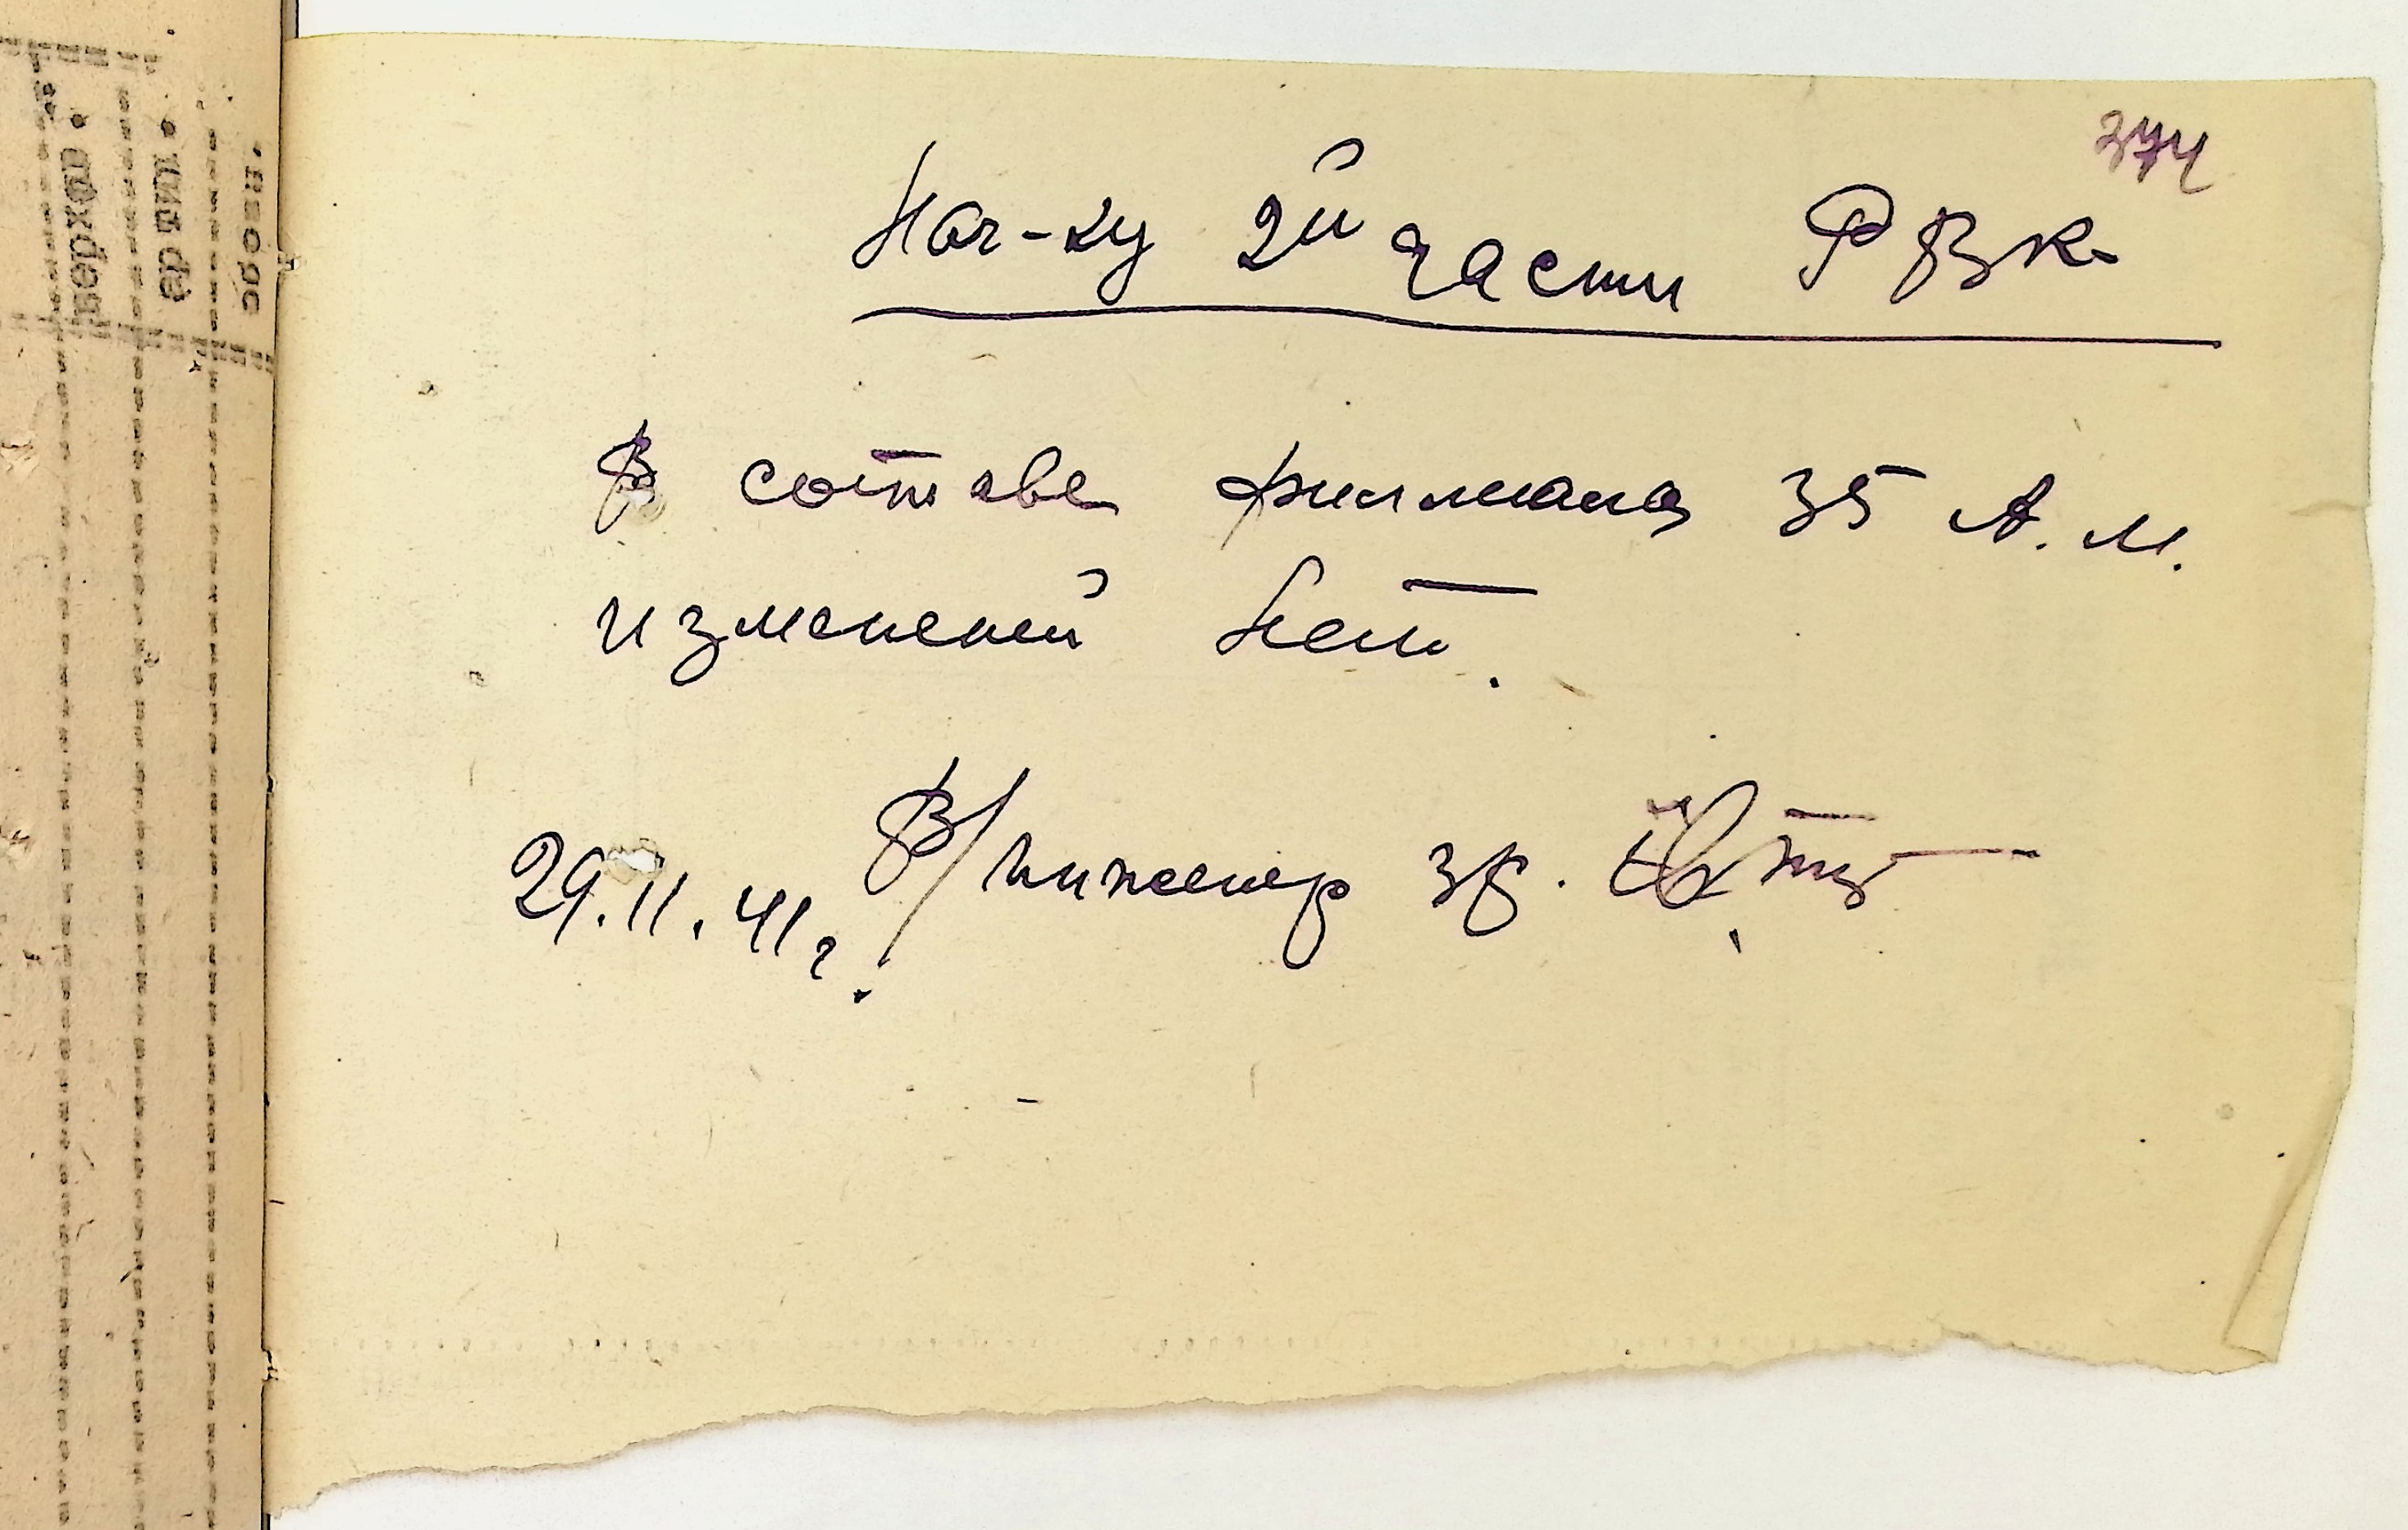 374
Нач-ку 2й части РВК
В составе филиала 35 А.М.
изменений нет.
29.11.41г. В/инженер 3р.